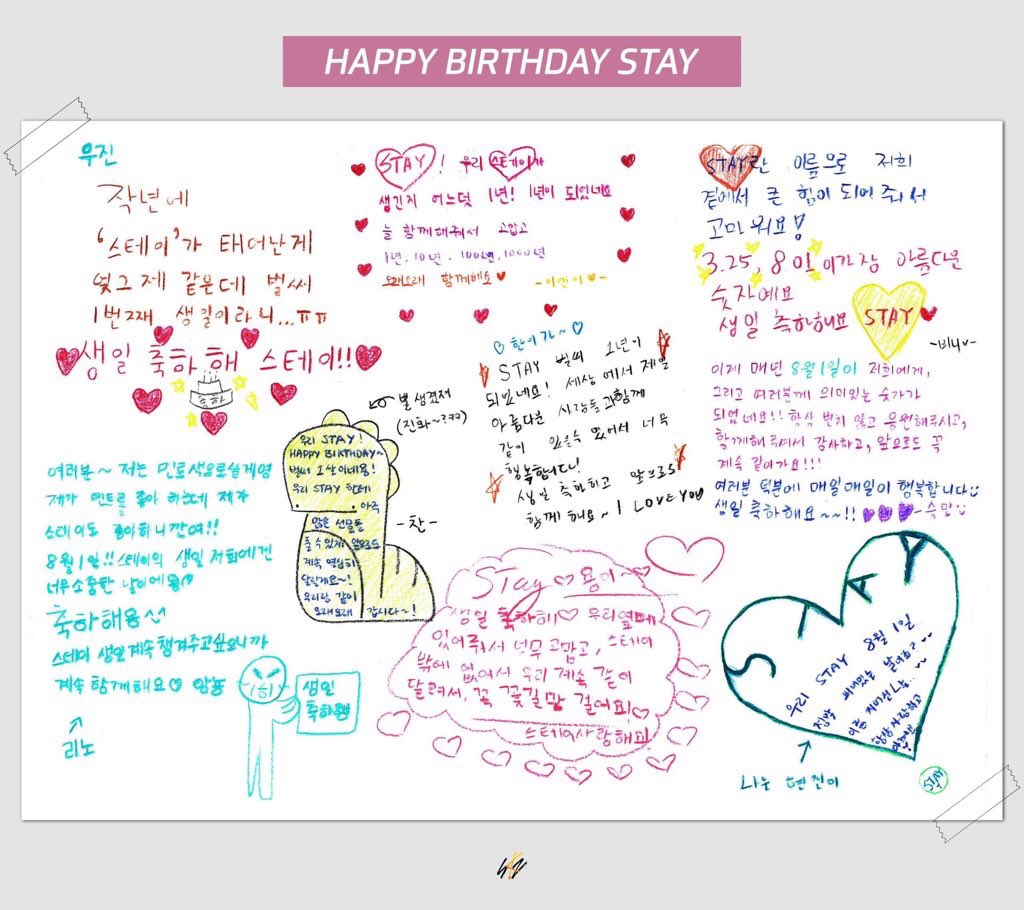 HAPPY BIRTHDAY STAY
우진
작년에
'스테이'가 태어난게
엊그제 같은데 벌써
1번째 생일이라니...ㅠㅠ
생일 축하해 스테이!!
축하
STAY! 우리 스테이가
생긴지 어느덧 1년! 1년이 되었네요
늘 함께해줘서 고맙고
1년, 10년, 100년, 1000년
오래오래 함께해요♥
-아이엔이♥-
STAY란 이름으로 저희
곁에서 큰 힘이 되어 주셔서
고마워요!
3.25, 8 이 가장 아름다운
숫자예요
생일 축하해요 STAY
-비니♡-
♡한이가~♡
STAY 벌써 1년이
되었네요! 세상에서 제일
아름다운 사람들과 함께
같이 있을수 있어서 너무
행복합니다!
생일 축하하고 앞으로도
함께해요~ I LOVE YOU
뿔 생겼쪄
(진화~?ㅋㅋ)
우리 STAY!
HAPPY BIRTHDAY~
벌써 1살이네용!
우리 STAY 한테
아주
많은 선물들
줄 수 있게 앞으로도
계속 열심히
달릴게요~!
우리랑 같이
오래오래 갑시다~!
-찬-
이제 매년 8월 1일이 저희에게,
그리고 여러분께 의미있는 숫자가
되었네요!! 항상 변치 않고 응원해주시고,
함께해 주셔서 감사하고, 앞으로도 꼭
계속 같이가요!!!
여러분 덕분에 매일매일이 행복합니다
생일 축하해요~~!! ♥♥♥-승민
여러분~ 저는 민트색으로쓸게영
제가 민트를 좋아 하는데 제가
스테이도 좋아하니깐여!!
8월 1일!! 스테이의 생일 저희에겐
너무소중한 날이에용♡
축하해용
스테이 생일계속챙겨주고싶으니까
계속 함께해요♡
리노
생일
축하행
Stay♡용이~
생일 축하해♡ 우리옆에
있어줘서 너무 고맙고, 스테이
밖에 없어서 우리 계속 같이
달려서, 꼭 꽃길만 걸어요!♡
스테이사랑해
STAY
우리 STAY 8월 1일
정말 의미있는 날이죠?
항상 사랑하고
나는 현진이
STAY